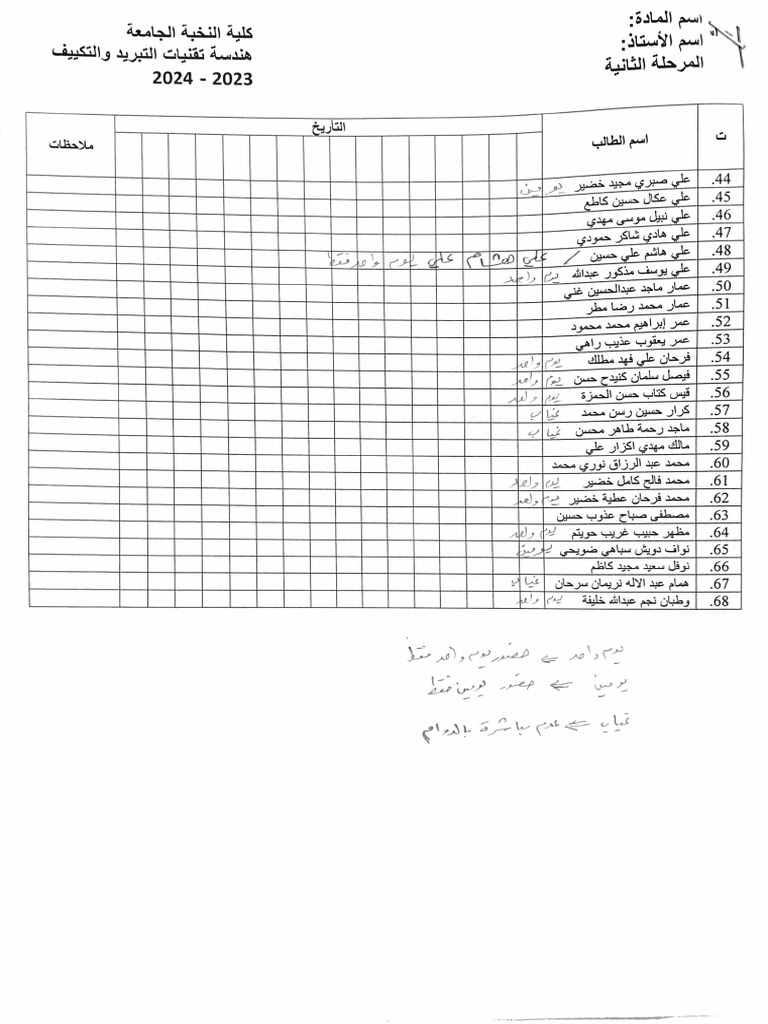 اسم المادة:
اسم الأستاذ:
المرحلة الثانية
كلية النخبة الجامعة
هندسة تقنيات التبريد والتكييف
2023 - 2024
ت اسم الطالب التأريخ ملاحظات
44. علي صبري مجيد خضير يومين
45. علي عكال حسين كاطع
46. علي نبيل موسى مهدي
47. علي هادي شاكر حمودي
48. علي هاشم علي حسين / علي هشام علي يوم واحد فقط
49. علي يوسف مذكور عبدالله يوم واحد
50. عمار ماجد عبدالحسين غني
51. عمار محمد رضا مطر
52. عمر إبراهيم محمد محمود
53. عمر يعقوب عذيب راهي
54. فرحان علي فهد مطلك يوم واحد
55. فيصل سلمان كنيدح حسن يوم واحد
56. قيس كتاب حسن الحمزة يوم واحد
57. كرار حسين رسن محمد غياب
58. ماجد رحمة طاهر محسن غياب
59. مالك مهدي اكزار علي
60. محمد عبد الرزاق نوري محمد
61. محمد فالح كامل خضير يوم واحد
62. محمد فرحان عطية خضير يوم واحد
63. مصطفى صباح عذوب حسين
64. مظهر حبيب غريب حويتم يوم واحد
65. نواف دويش سباهي ضويحي يومين
66. نوفل سعيد مجيد كاظم
67. همام عبد الاله نريمان سرحان غياب
68. وطبان نجم عبدالله خليفة يوم واحد
يوم واحد ⇐ حضور يوم واحد فقط
يومين ⇐ حضور يومين فقط
غياب ⇐ عدم مباشرة بالدوام